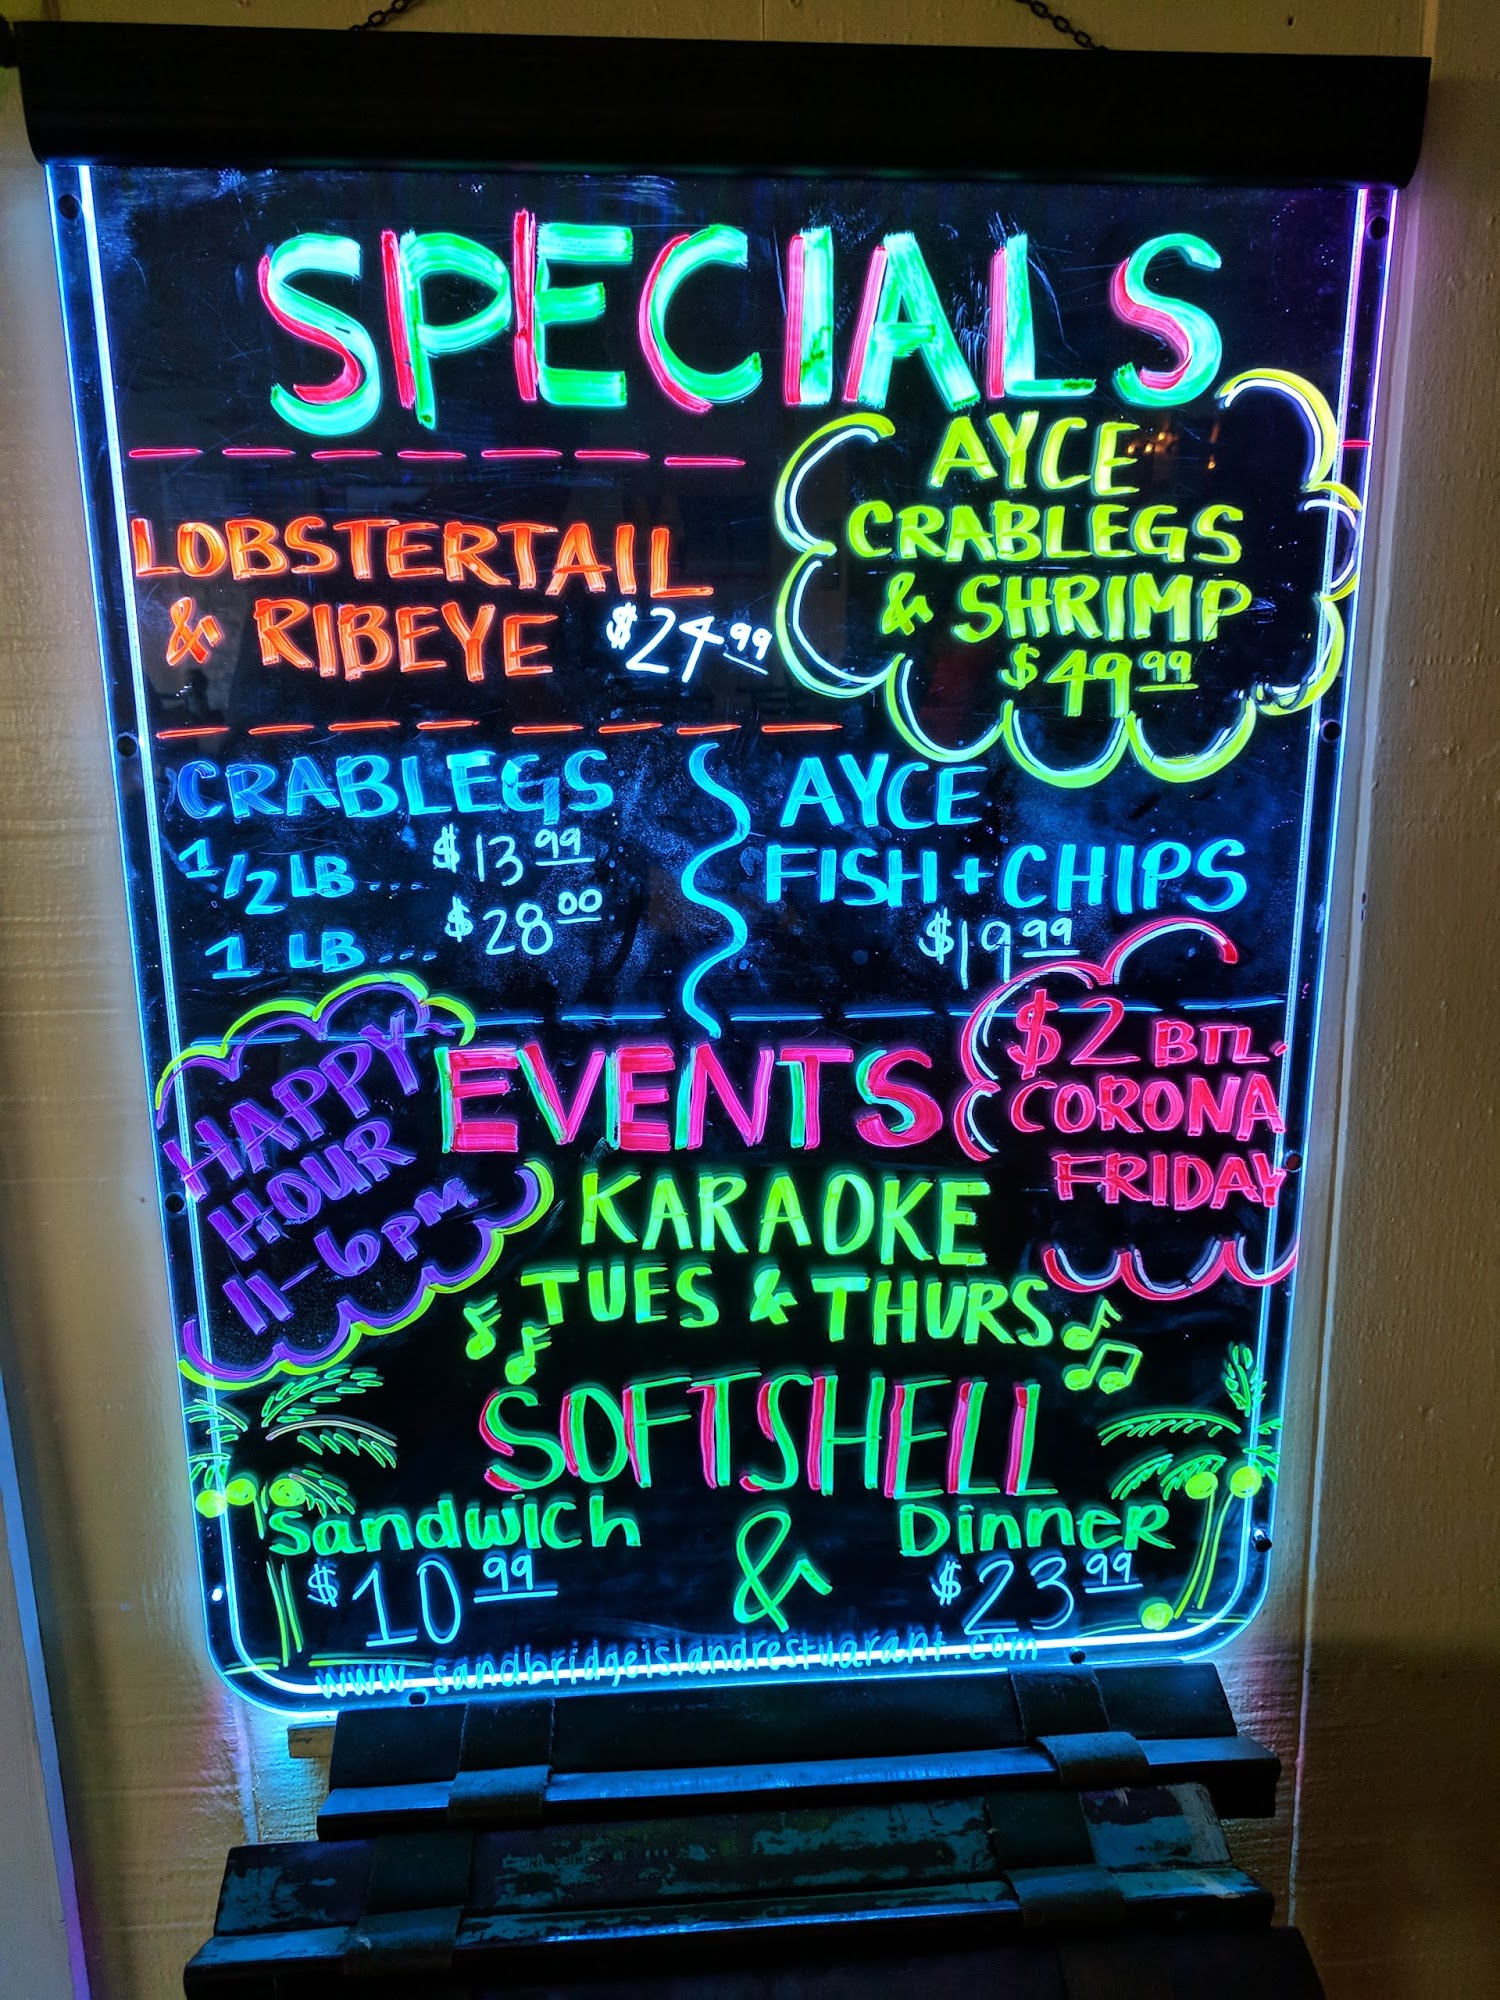 SPECIALS
LOBSTERTAIL
& RIBEYE $24.99
AYCE
CRABLEGS
& SHRIMP
$49.99
CRABLEGS
1/2 LB... $13.99
1 LB... $28.00
AYCE
FISH + CHIPS
$19.99
HAPPY
HOUR
11-6PM
EVENTS
KARAOKE
TUES & THURS
$2 BTL.
CORONA
FRIDAY
SOFTSHELL
Sandwich & Dinner
$10.99 $23.99
www.sandbridgeislandrestuarant.com